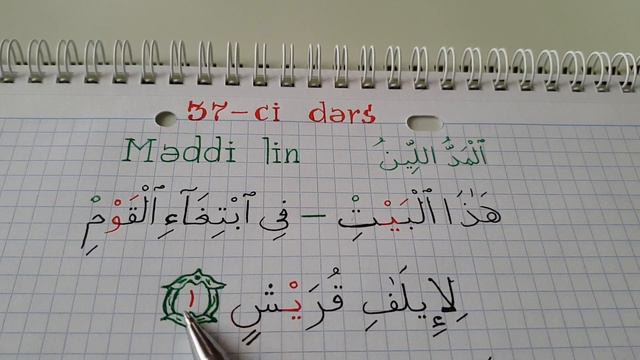 37-ci dərs
Məddi lin اَلْمَدُّ اللِّينُ
هَٰذَا ٱلْبَيْتِْ – فِي ٱبْتِغَآءِ ٱلْقَوْمِْ
لِإِيلَٰفِ قُرَيْشٍ ١